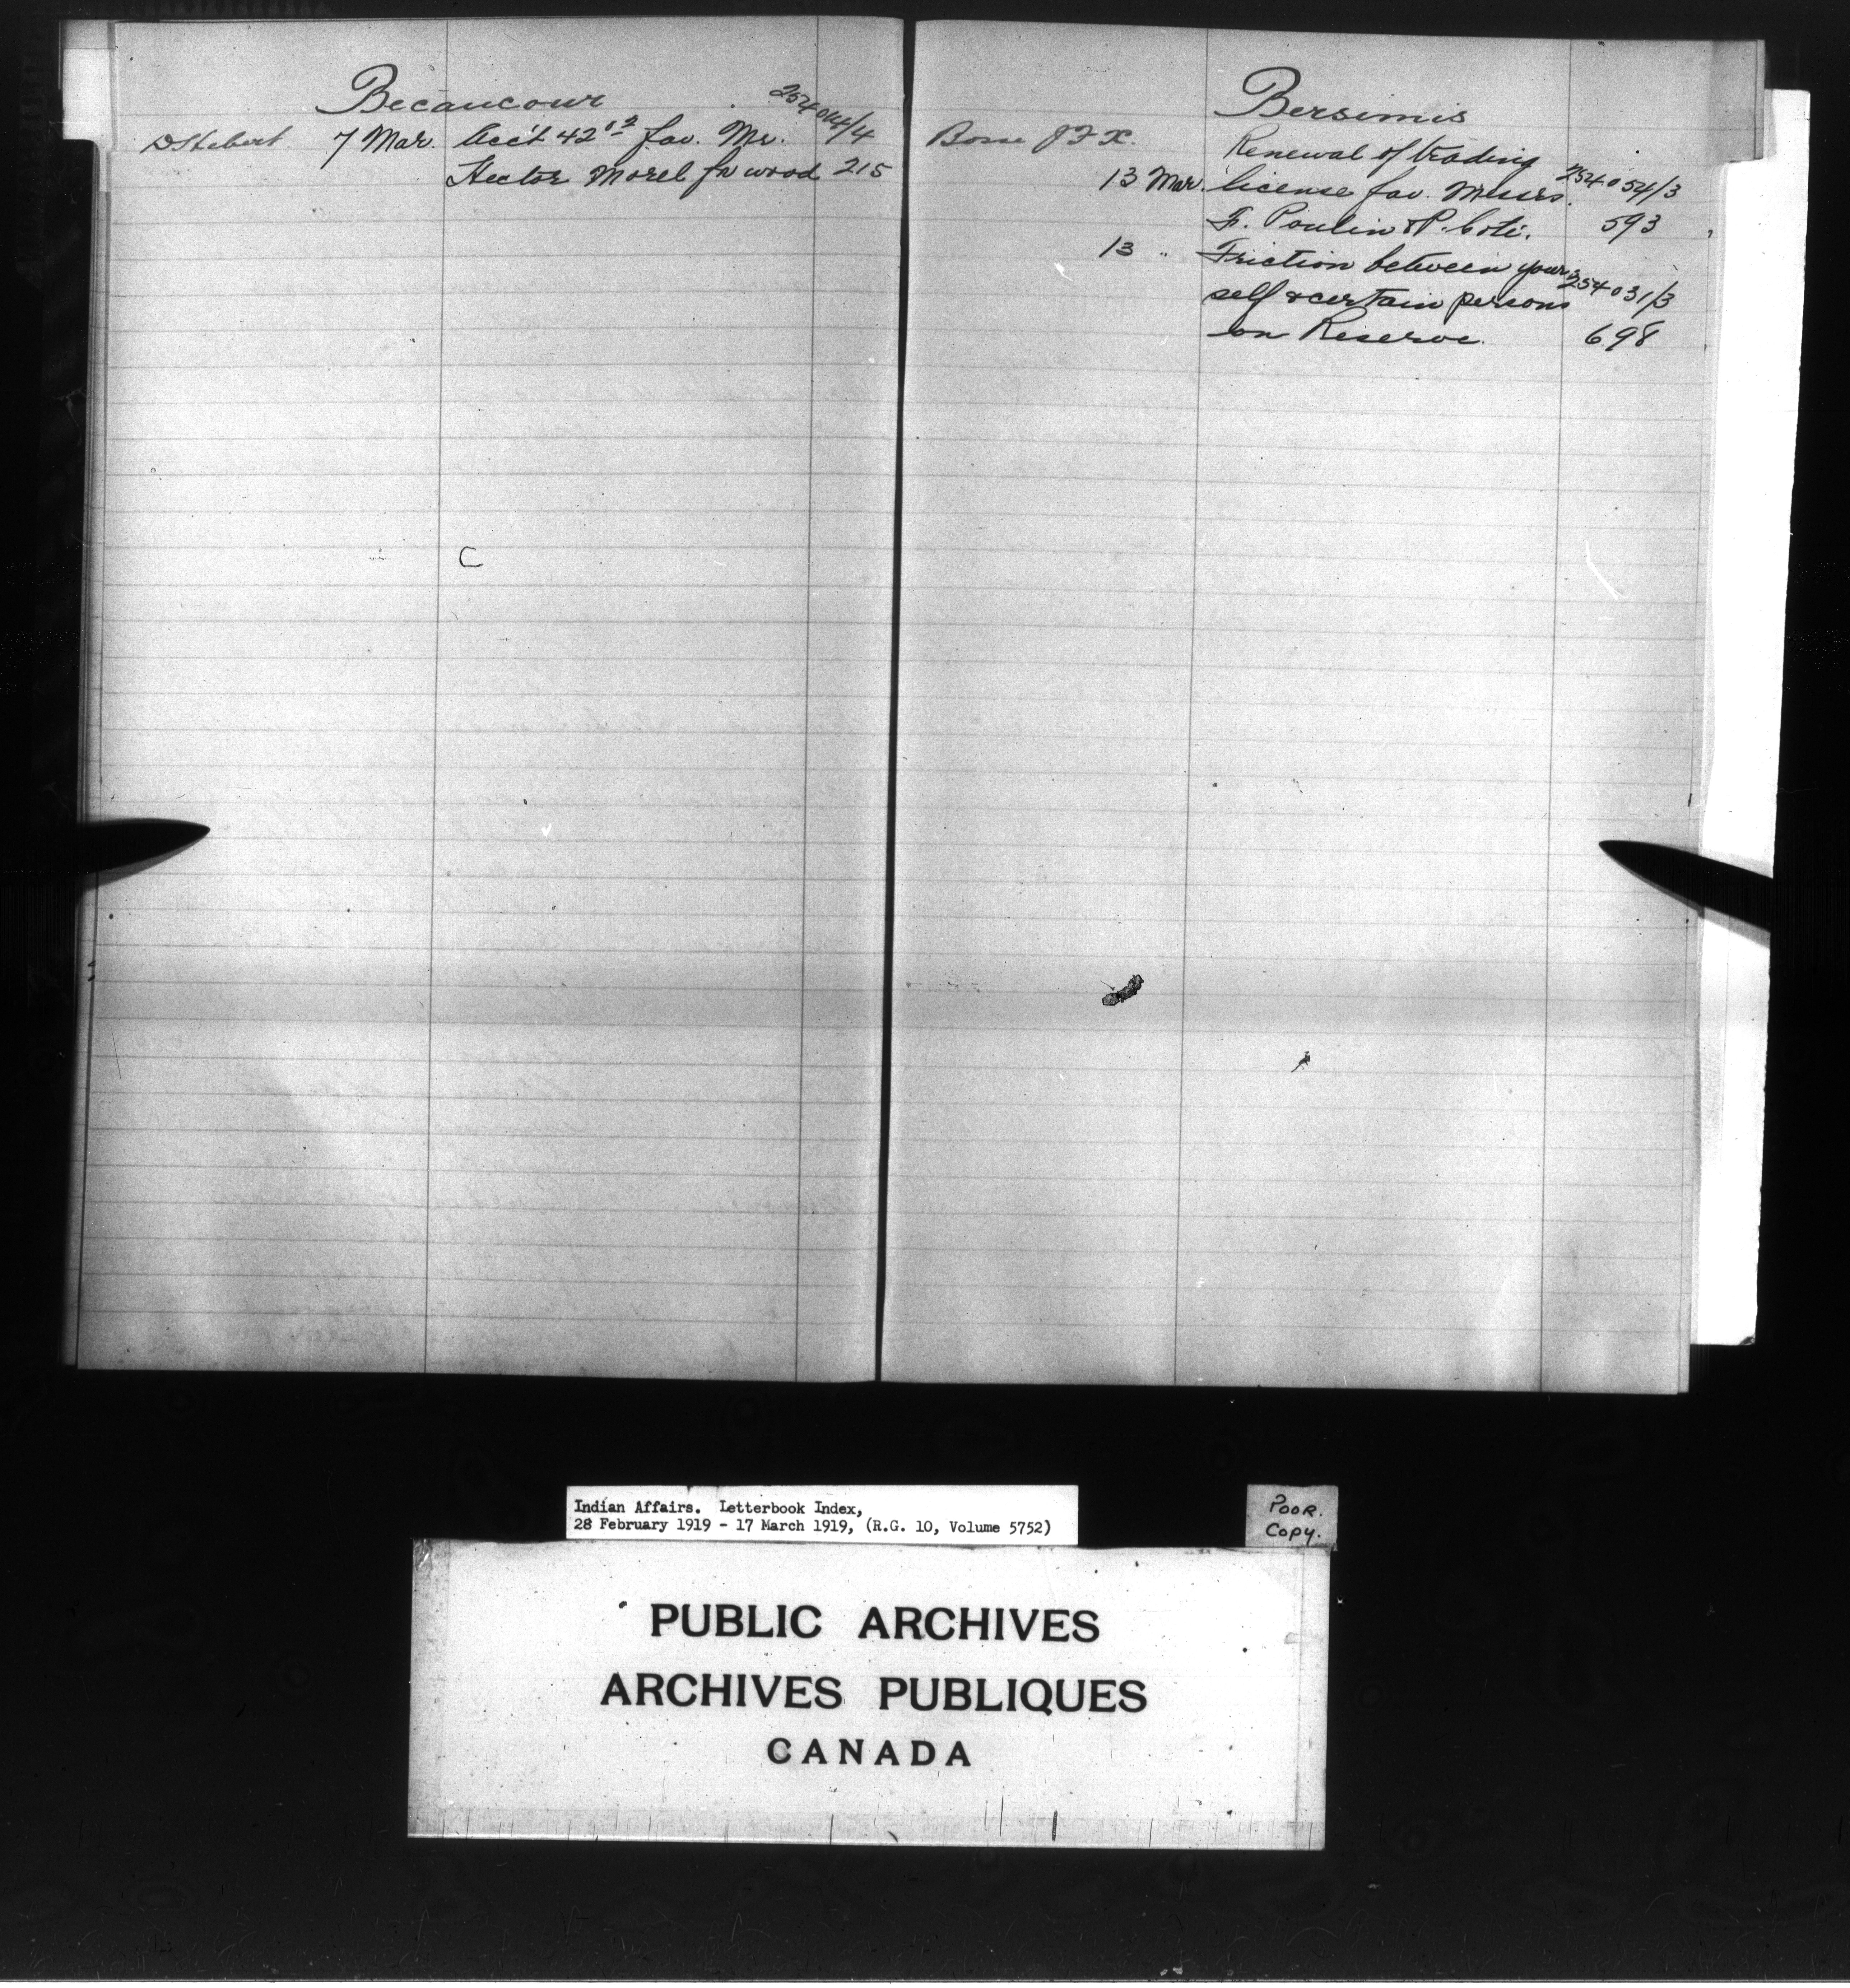 Becancour
D Hebert 7 Mar. Acc't 42 12 fav. Mr. 254044/4
Hector Morel for wood 215
Bersimis
Bosse J F X. Renewal of trading
13 Mar. license fav. Messrs. 254054/3
Fr. Poulin & P. Coté. 593
13 " Friction between your- 254031/3
self & certain persons
on Reserve. 698
Indian Affairs. Letterbook Index,
28 February 1919 - 17 March 1919, (R.G. 10, Volume 5752)
POOR.
COPY.
PUBLIC ARCHIVES
ARCHIVES PUBLIQUES
CANADA